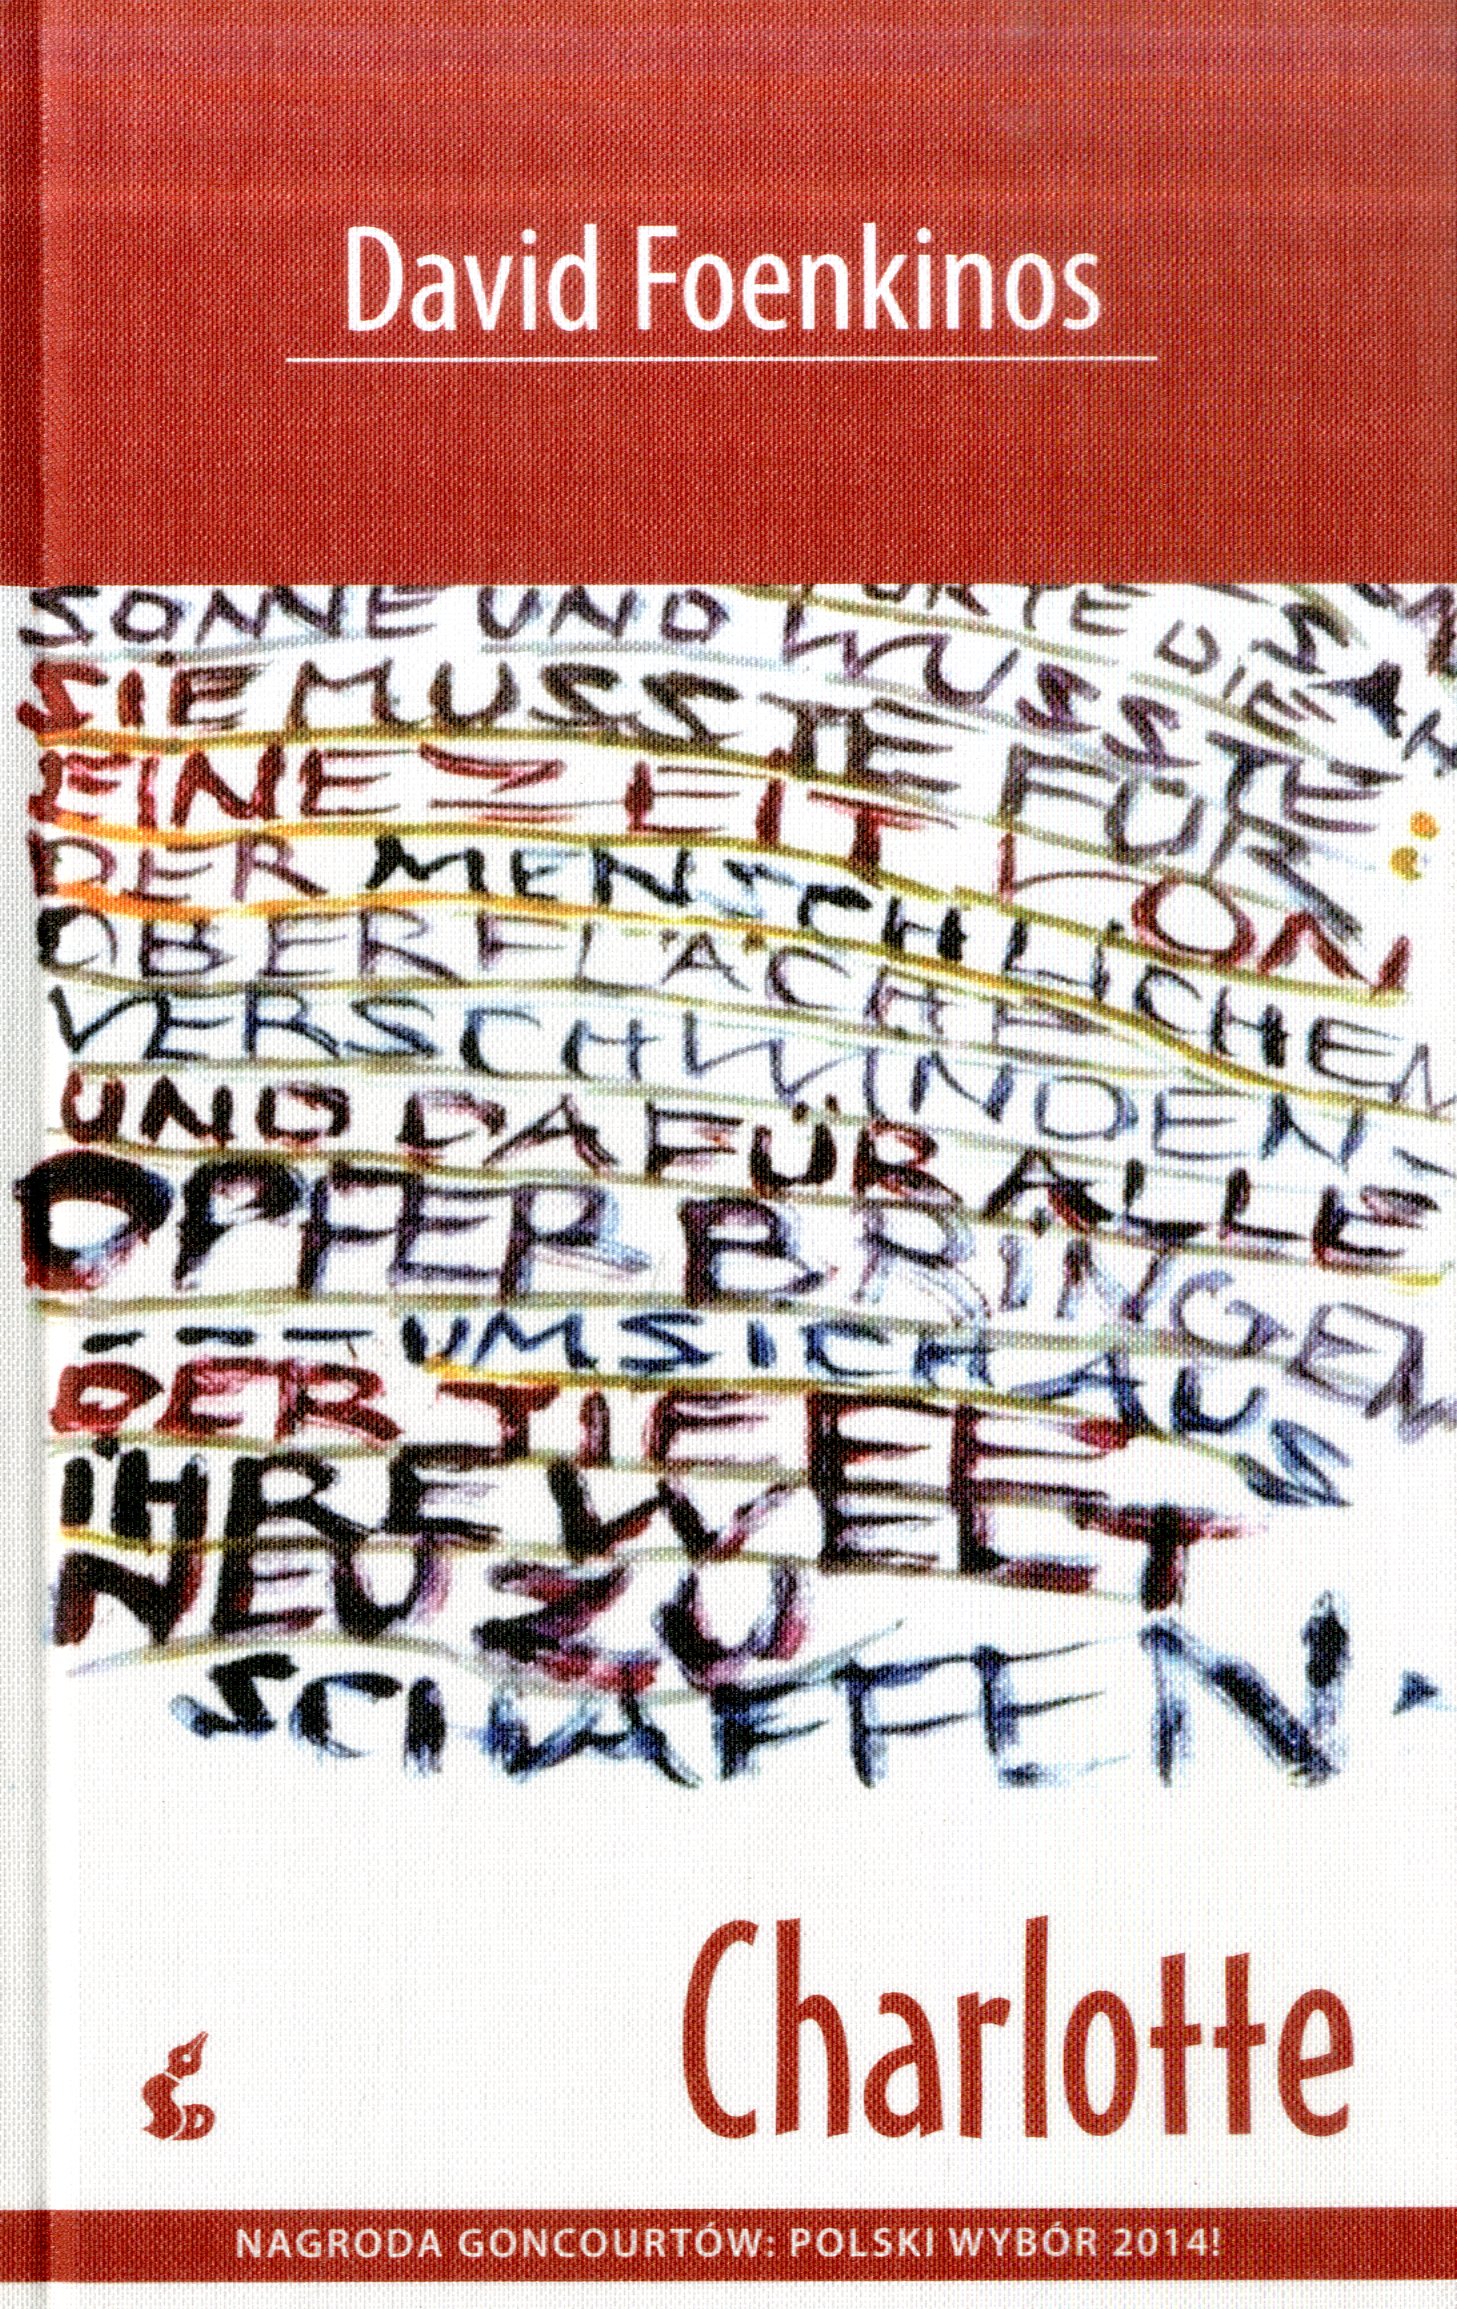 David Foenkinos
SONNE UND WUSSTE:
SIE MUSSTE FÜR
EINE ZEIT VON
DER MENSCHLICHEN
OBERFLÄCHE
VERSCHWINDEN-
UND DAFÜR ALLE
OPFER BRINGEN
UM SICH AUS
DER TIEFE
IHRE WELT
NEU ZU
SCHAFFEN.
Charlotte
SD
NAGRODA GONCOURTÓW: POLSKI WYBÓR 2014!